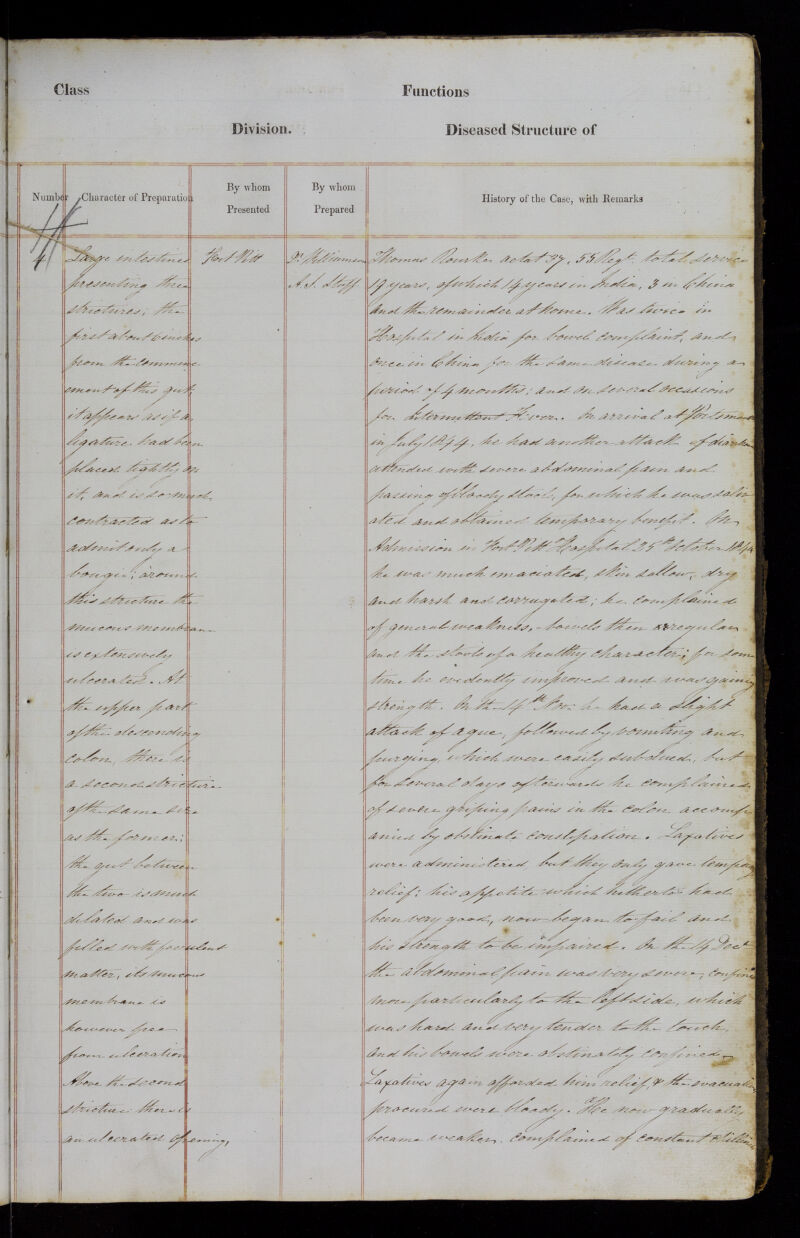 Class
Functions
Division.
Diseased Structure of
Number
Character of Preparation
By whom
Presented
By whom
Prepared
History of the Case, with Remarks
4
Large intestines
presenting three
strictures; the
first about 6 inches
from the commenc
ement of this gut,
it appears as if a
ligature had been
placed tightly on
it, and is so much
contracted as to
admit only a
bougie; around
this stricture the
mucous membrane
is extensively
ulcerated. At
the upper part
of the descending
colon, there is
a second stricture
of the same size
as the former;
the gut between
the two is much
dilated and was
filled with feculent
matter, its mucous
membrane is
however free
from ulceration
Above the second
stricture there is
an ulcerated opening,
Fort Pitt
Dr Williamson
A.S. Staff
Thomas Rourke aetat 37, 55 Regt. total service
19 years, of which 14 years in India, 3 in China
and the remainder at home. Was twice in
Hospital in India for bowel complaint, and
once in China for the same disease during a
period of 4 months; and on several occasions
for Intermittent Fever. On arrival at
in July 1844, he had another attack of
attended with severe abdominal pain and
passing of bloody stool, for which he was saliv
ated and obtained temporary benefit. On
Admission in Fort Pitt Hospital 25th October 1844
he was much emaciated, skin sallow, dry
and harsh and corrugated; he complained
of general weakness, bowels then regular
and the stools of a healthy character; for some
time he evidently improved and was gaining
strength. On the 14th Nov. he had a slight
attack of ague, followed by vomiting and
purging, which were easily subdued, but
for several days afterwards he complained
of severe griping pains in the colon accomp
anied by obstinate constipation. Laxatives
were administered but they only gave
relief; his appetite which hitherto had
been very good, now began to fail and
his strength to be impaired. On the 14 Decr
the abdominal pain was very severe, confined
more particularly to the left side, which
was hard and very tender to the touch,
and his bowels were obstinately confined.
Laxatives again afforded him relief, & the
procured were bloody. He now gradually
became weaker. complained of constant